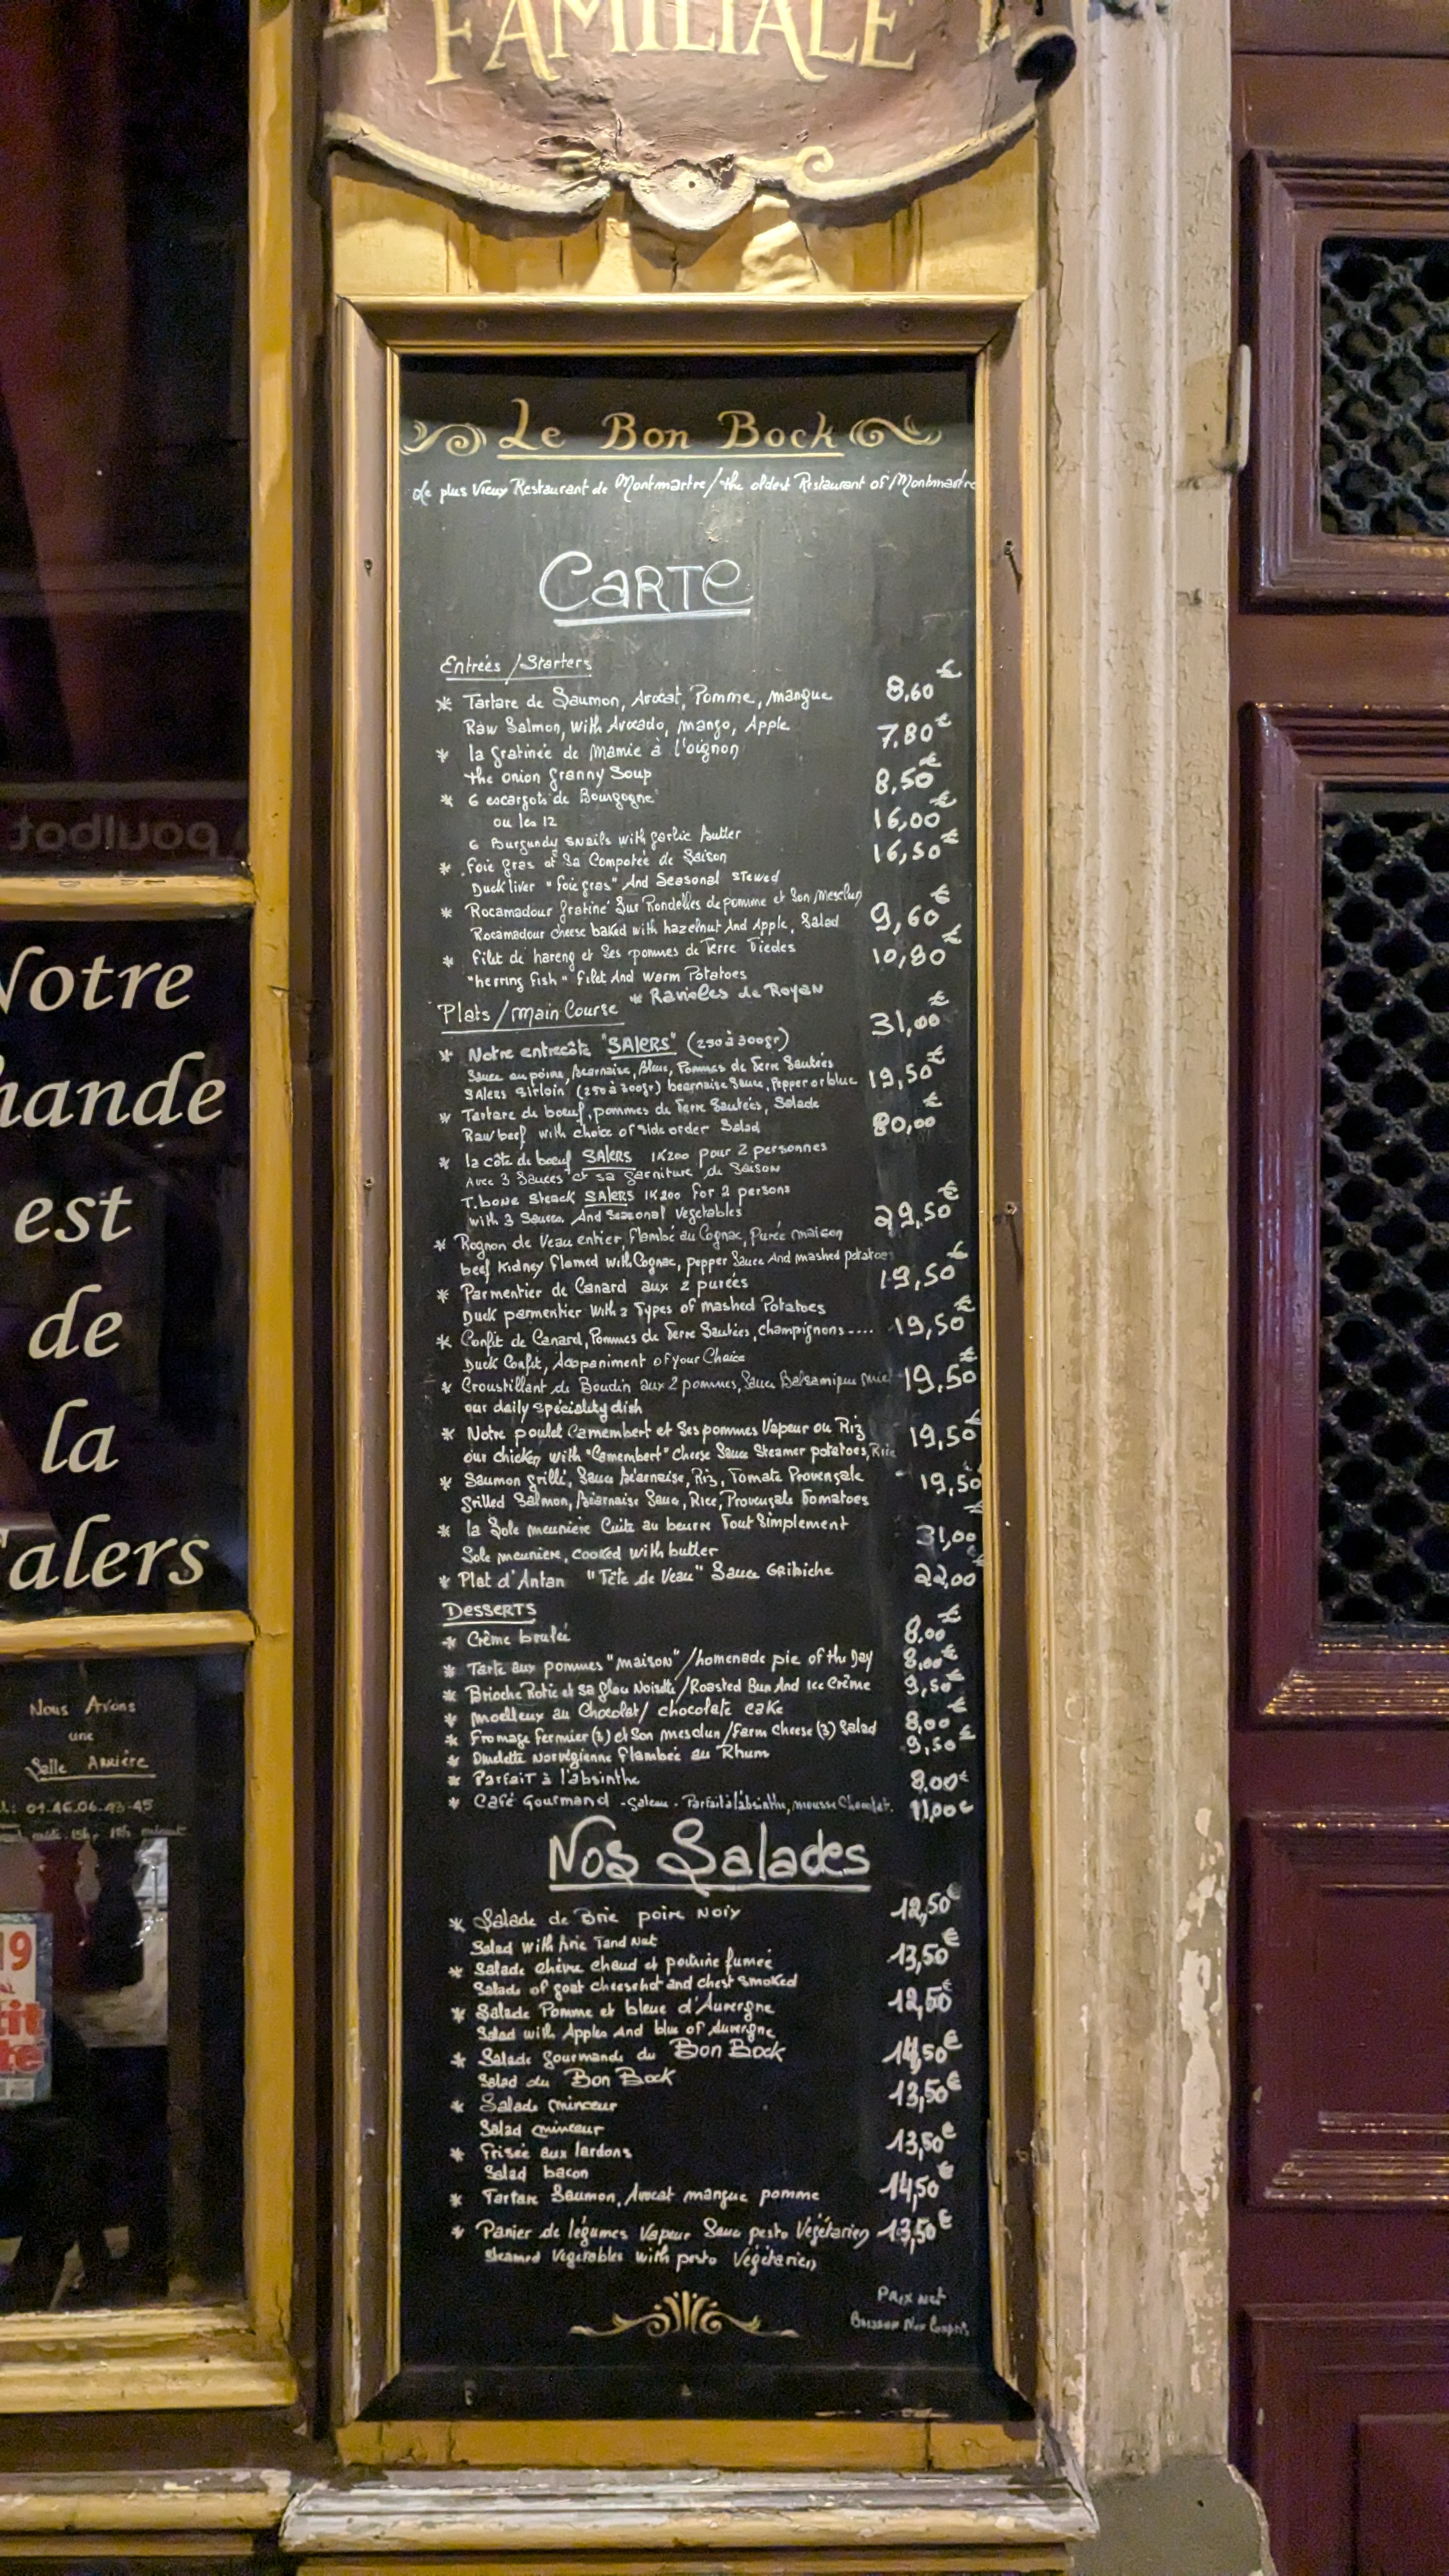 FAMILIALE
Le Bon Bock
Le plus Vieux Restaurant de Montmartre / the oldest Restaurant of Montmartre
CARTE
Entrées / Starters
* Tartare de Saumon, Avocat, Pomme, mangue 8,60 €
Raw Salmon, with Avocado, mango, Apple
* la gratinée de Mamie à l'oignon 7,80 €
the onion granny Soup
* 6 escargots de Bourgogne 8,50 €
ou les 12 16,00 €
6 Burgundy snails with garlic butter
* Foie gras et sa Compotée de Saison 16,50 €
Duck liver "foie gras" And Seasonal stewed
* Rocamadour gratiné Sur Rondelles de pomme et Son Mesclun 9,60 €
Rocamadour cheese baked with hazelnut And Apple, Salad
* Filet de hareng et Ses pommes de Terre Tiedes 10,80 €
"herring fish" Filet And warm Potatoes
* Ravioles de Royan
Plats / Main Course
* Notre entrecôte "SALERS" (250 à 300gr) 31,00 €
Sauce au poivre, Béarnaise, Bleue, Pommes de Terre Sautées
SALERS Sirloin (250 à 300gr) bearnaise Sauce, Pepper or blue
* Tartare de boeuf, pommes de Terre Sautées, Salade 19,50 €
Raw beef with choice of side order Salad
* la côte de boeuf SALERS 1K200 pour 2 personnes 80,00 €
Avec 3 Sauces et sa garniture de Saison
T.bone Steack SALERS 1K200 for 2 persons
with 3 Sauces And Seasonal Vegetables
* Rognon de Veau entier, Flambé au Cognac, Purée maison 29,50 €
beef Kidney flamed with Cognac, pepper Sauce And mashed potatoes
* Parmentier de Canard aux 2 purées 19,50 €
Duck parmentier With 2 Types of mashed Potatoes
* Confit de Canard, Pommes de Terre Sautées, champignons .... 19,50 €
Duck Confit, Acopaniment of your Choice
* Croustillant de Boudin aux 2 pommes, Sauce Balsamique miel 19,50 €
our daily spéciality dish
* Notre poulet Camembert et Ses pommes Vapeur ou Riz 19,50 €
our chicken with "Camembert" Cheese Sauce Steamer potatoes, Rice
* Saumon grillé, Sauce béarnaise, Riz, Tomate Provençale - 19,50
Grilled Salmon, Béarnaise Sauce, Rice, Provençale Tomatoes
* la Sole meunière Cuite au beurre Tout Simplement 31,00 €
Sole meuniere, cooked with butter
* Plat d'Antan "Tête de Veau" Sauce Gribiche 22,00 €
DESSERTS
* Crème brulée 8,00 €
* Tarte aux pommes "maison" / homenade pie of the Day 8,00 €
* Brioche Rotie et sa glace Noisette / Roasted Bun And Ice Crème 9,50 €
* Moelleux au Chocolat / chocolate cake 8,00 €
* Fromage Fermier (3) et Son mesclun / farm cheese (3) Salad 9,50 €
* Omelette Norvégienne flambée au Rhum
* Parfait à l'absinthe 8,00 €
* Café Gourmand - Gateau - Parfait à l'absinthe, mousse Chocolat. 11,00 €
Nos Salades
* Salade de Brie poire Noix 12,50 €
Salad with brie Tand Nut
* Salade chèvre chaud et poitrine fumée 13,50 €
Salade of goat cheesehot and chest smoked
* Salade Pomme et bleue d'Auvergne 12,50 €
Salad with Apples And blue of Auvergne
* Salade Gourmande du Bon Bock 14,50 €
Salad du Bon Bock
* Salade minceur 13,50 €
Salad minceur
* Frisée aux lardons 13,50 €
Salad bacon
* Tartare Saumon, Avocat mangue pomme 14,50 €
* Panier de légumes Vapeur Sauce pesto Végétarien 13,50 €
Steamed Vegetables with pesto Végétarien
Prix net
Boisson Non Compris
Notre
est
de
la
alers
Nous Avons
une
Salle Arrière
01.46.06.43.45
19